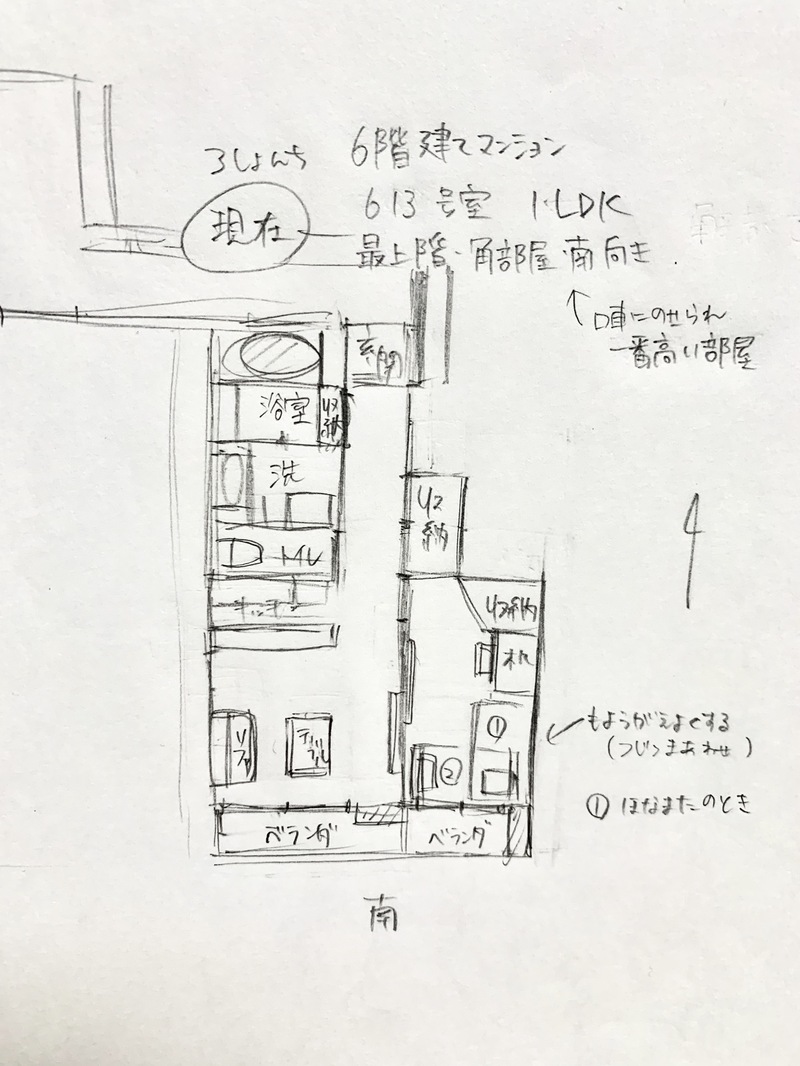 ろしょんち
6階建てマンション
現在
613号室 1・LDK
最上階・角部屋・南向き
↑口車にのせられ
一番高い部屋
玄関
浴室
収納
洗
収納
MV
キッチン
収納
机
ソファ
テーブル
①
②
もようがえよくする
(つじつまあわせ)
① ほなまたのとき
ベランダ
ベランダ
南